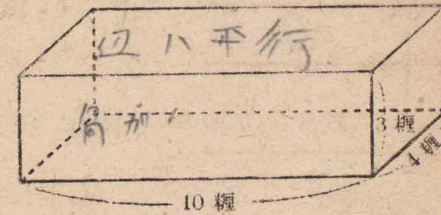 辺ハ平行
3 糎
4 糎
10 糎